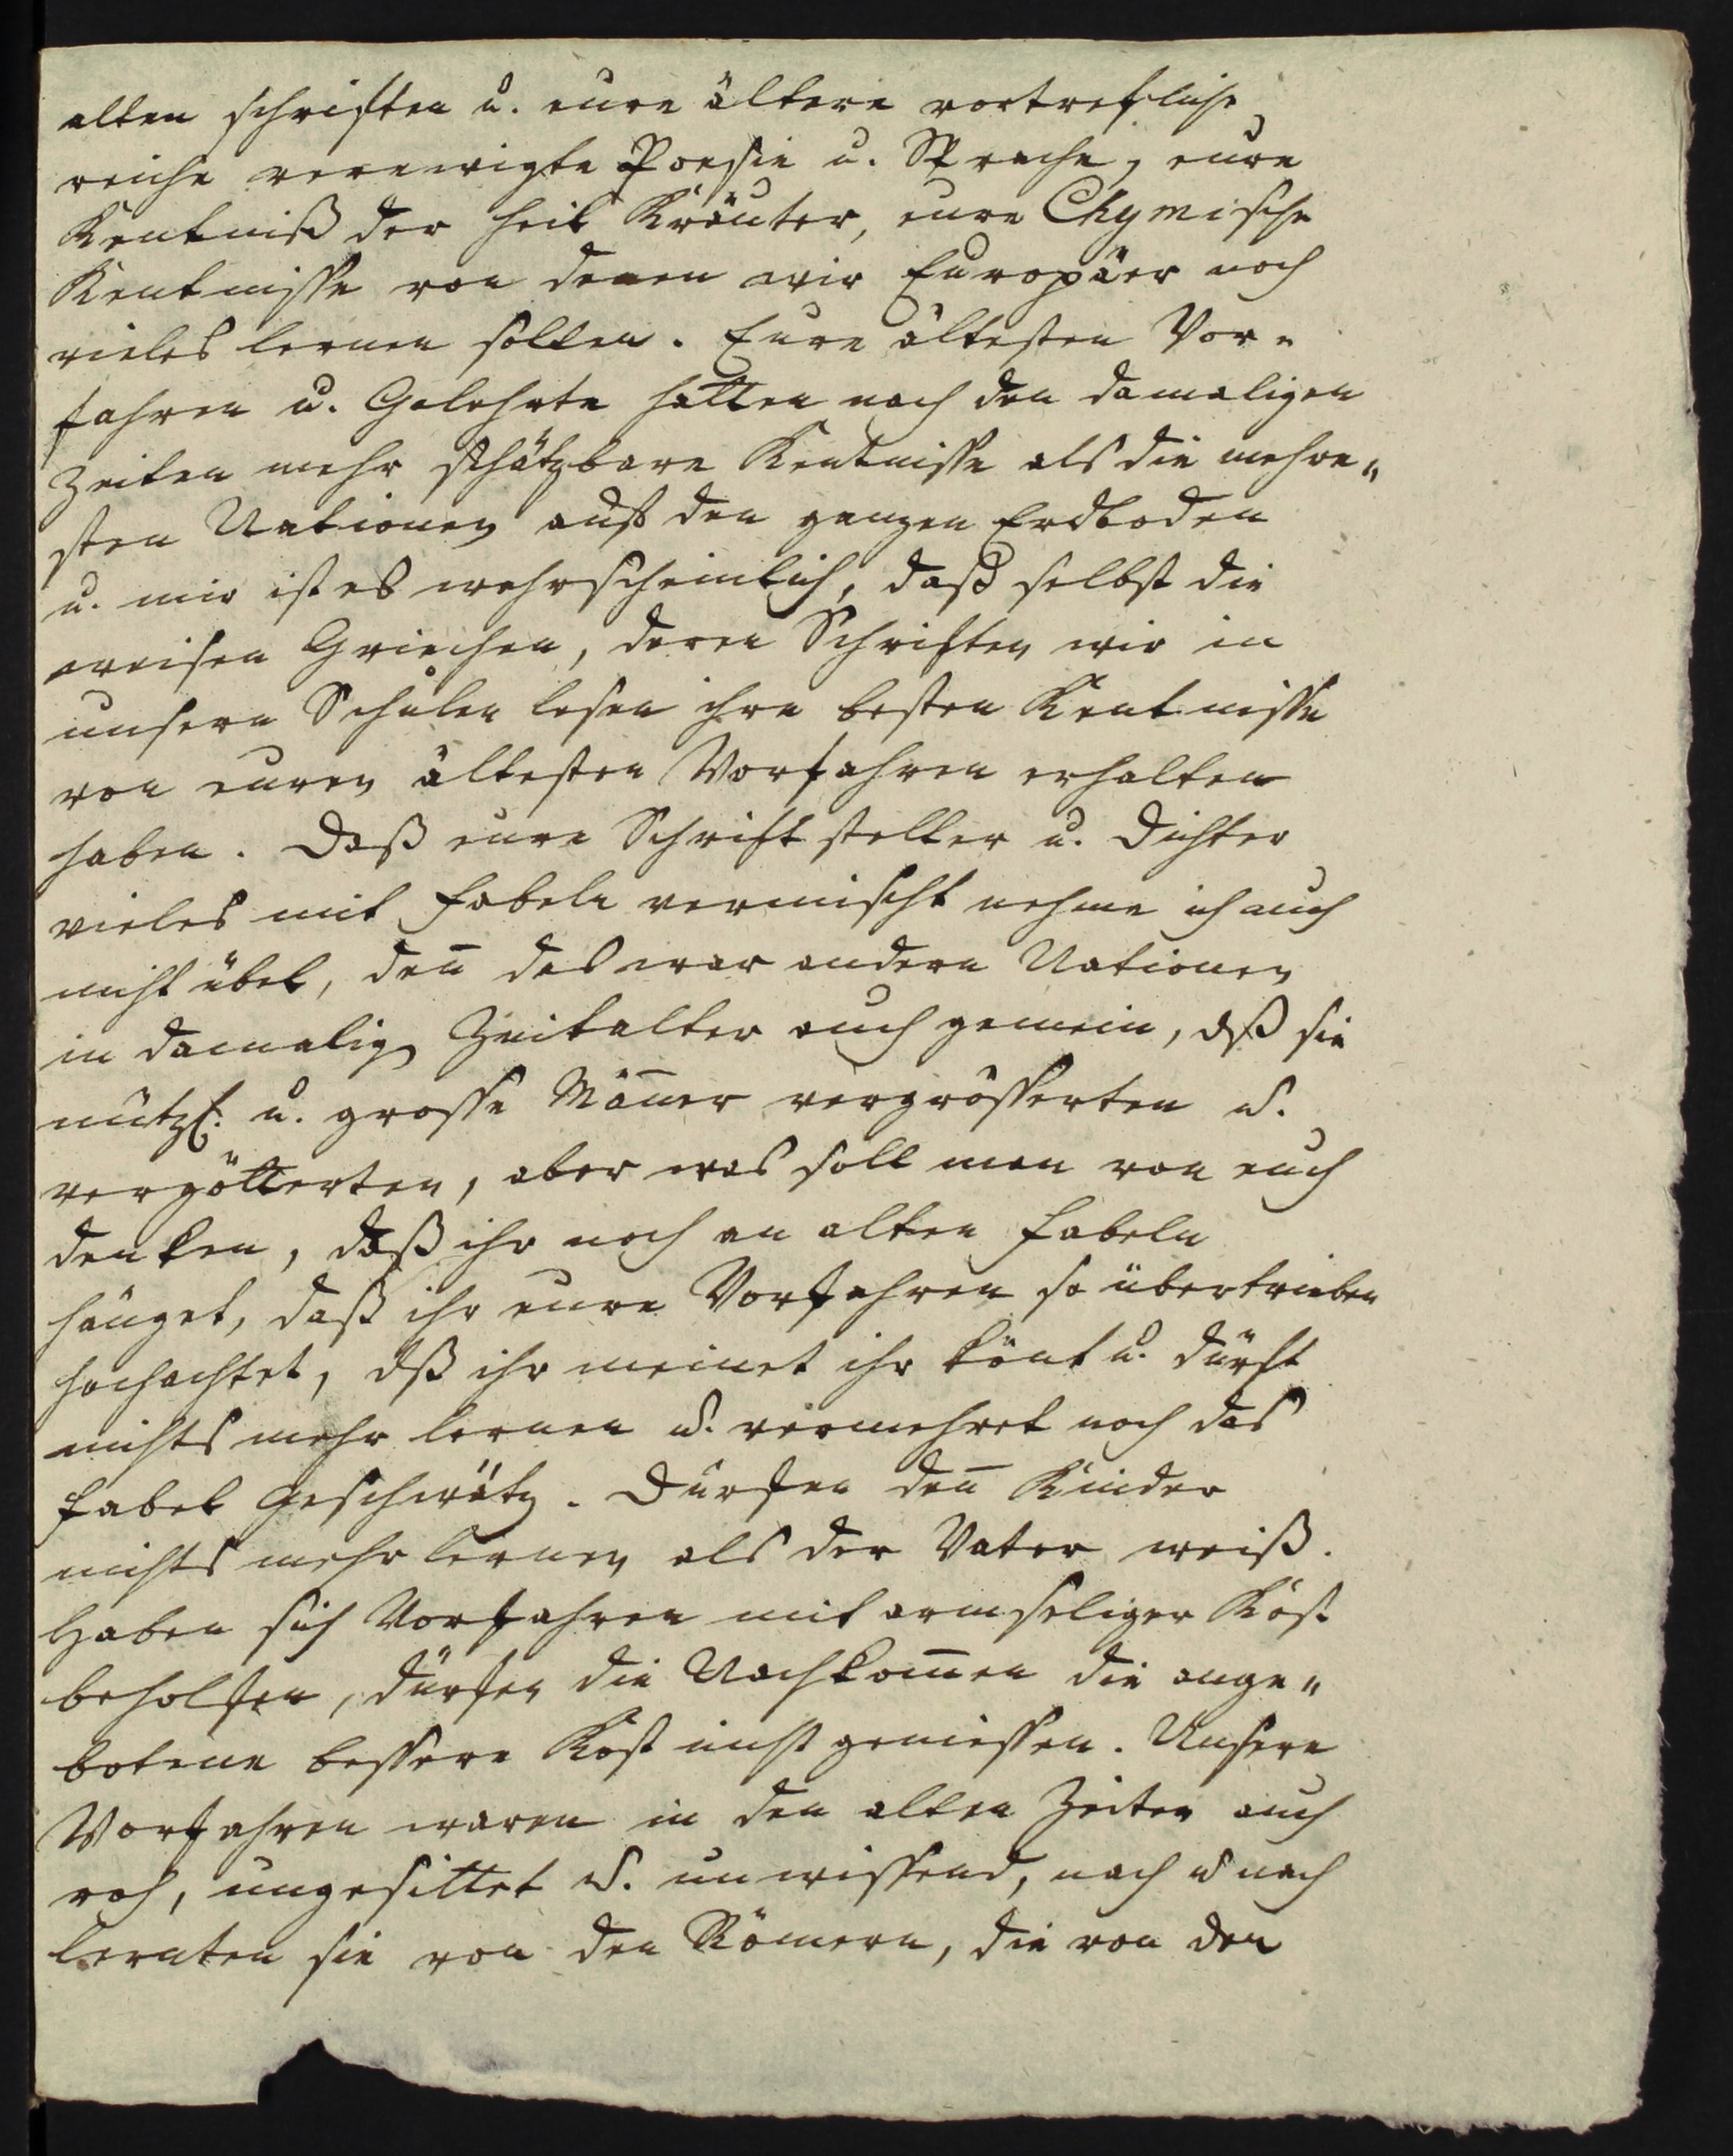 alten schriften u. eure ältere vortrefliche
reiche verewigte Poesie u. Sprache, eure
Kentniß der heil Kräuter, eure Chymische
Kentnisse von denen wir Europäer noch
vieles lernen sollen. Eure ältesten Vor=
fahren u. Gelehrte hatten nach den damaligen
Zeiten mehr schätzbare Kentnisse als die mehre=
sten Nationen auf den ganzen Erdboden
u. mir ist es wahrscheinlich, daß selbst die
weisen Griechen, deren Schriften wir in
unsern Schulen lesen ihre besten Kentnisse
von euren ältesten Vorfahren erhalten
haben. Daß eure Schriftsteller u. Dichter
vieles mit Fabeln vermischt nehme ich auch
nicht übel, deñ das war andern Nationen
in damalig Zeitalter auch gemein, dß sie
nützl. u. grosse Mäñer vergrösserten u.
vergötterten, aber was soll man von euch
denken, daß ihr noch an alten Fabeln
hänget, daß ihr eure Vorfahren so übertrieben
hochachtet, dß ihr meinet ihr könt u. dürft
nichts mehr lernen u. vermehret noch das
Fabel Geschwätz. Dürfen deñ Kinder
nichts mehr lernen als der Vater weiß.
Haben sich Vorfahren mit armseliger Kost
beholfen, dürfen die Nachkom̄en die ange=
botene bessere Kost nicht geniessen. Unsere
Vorfahren waren in den alten Zeiten auch
roh, ungesittet u. unwissend, nach u nach
lernten sie von den Römern, die von den